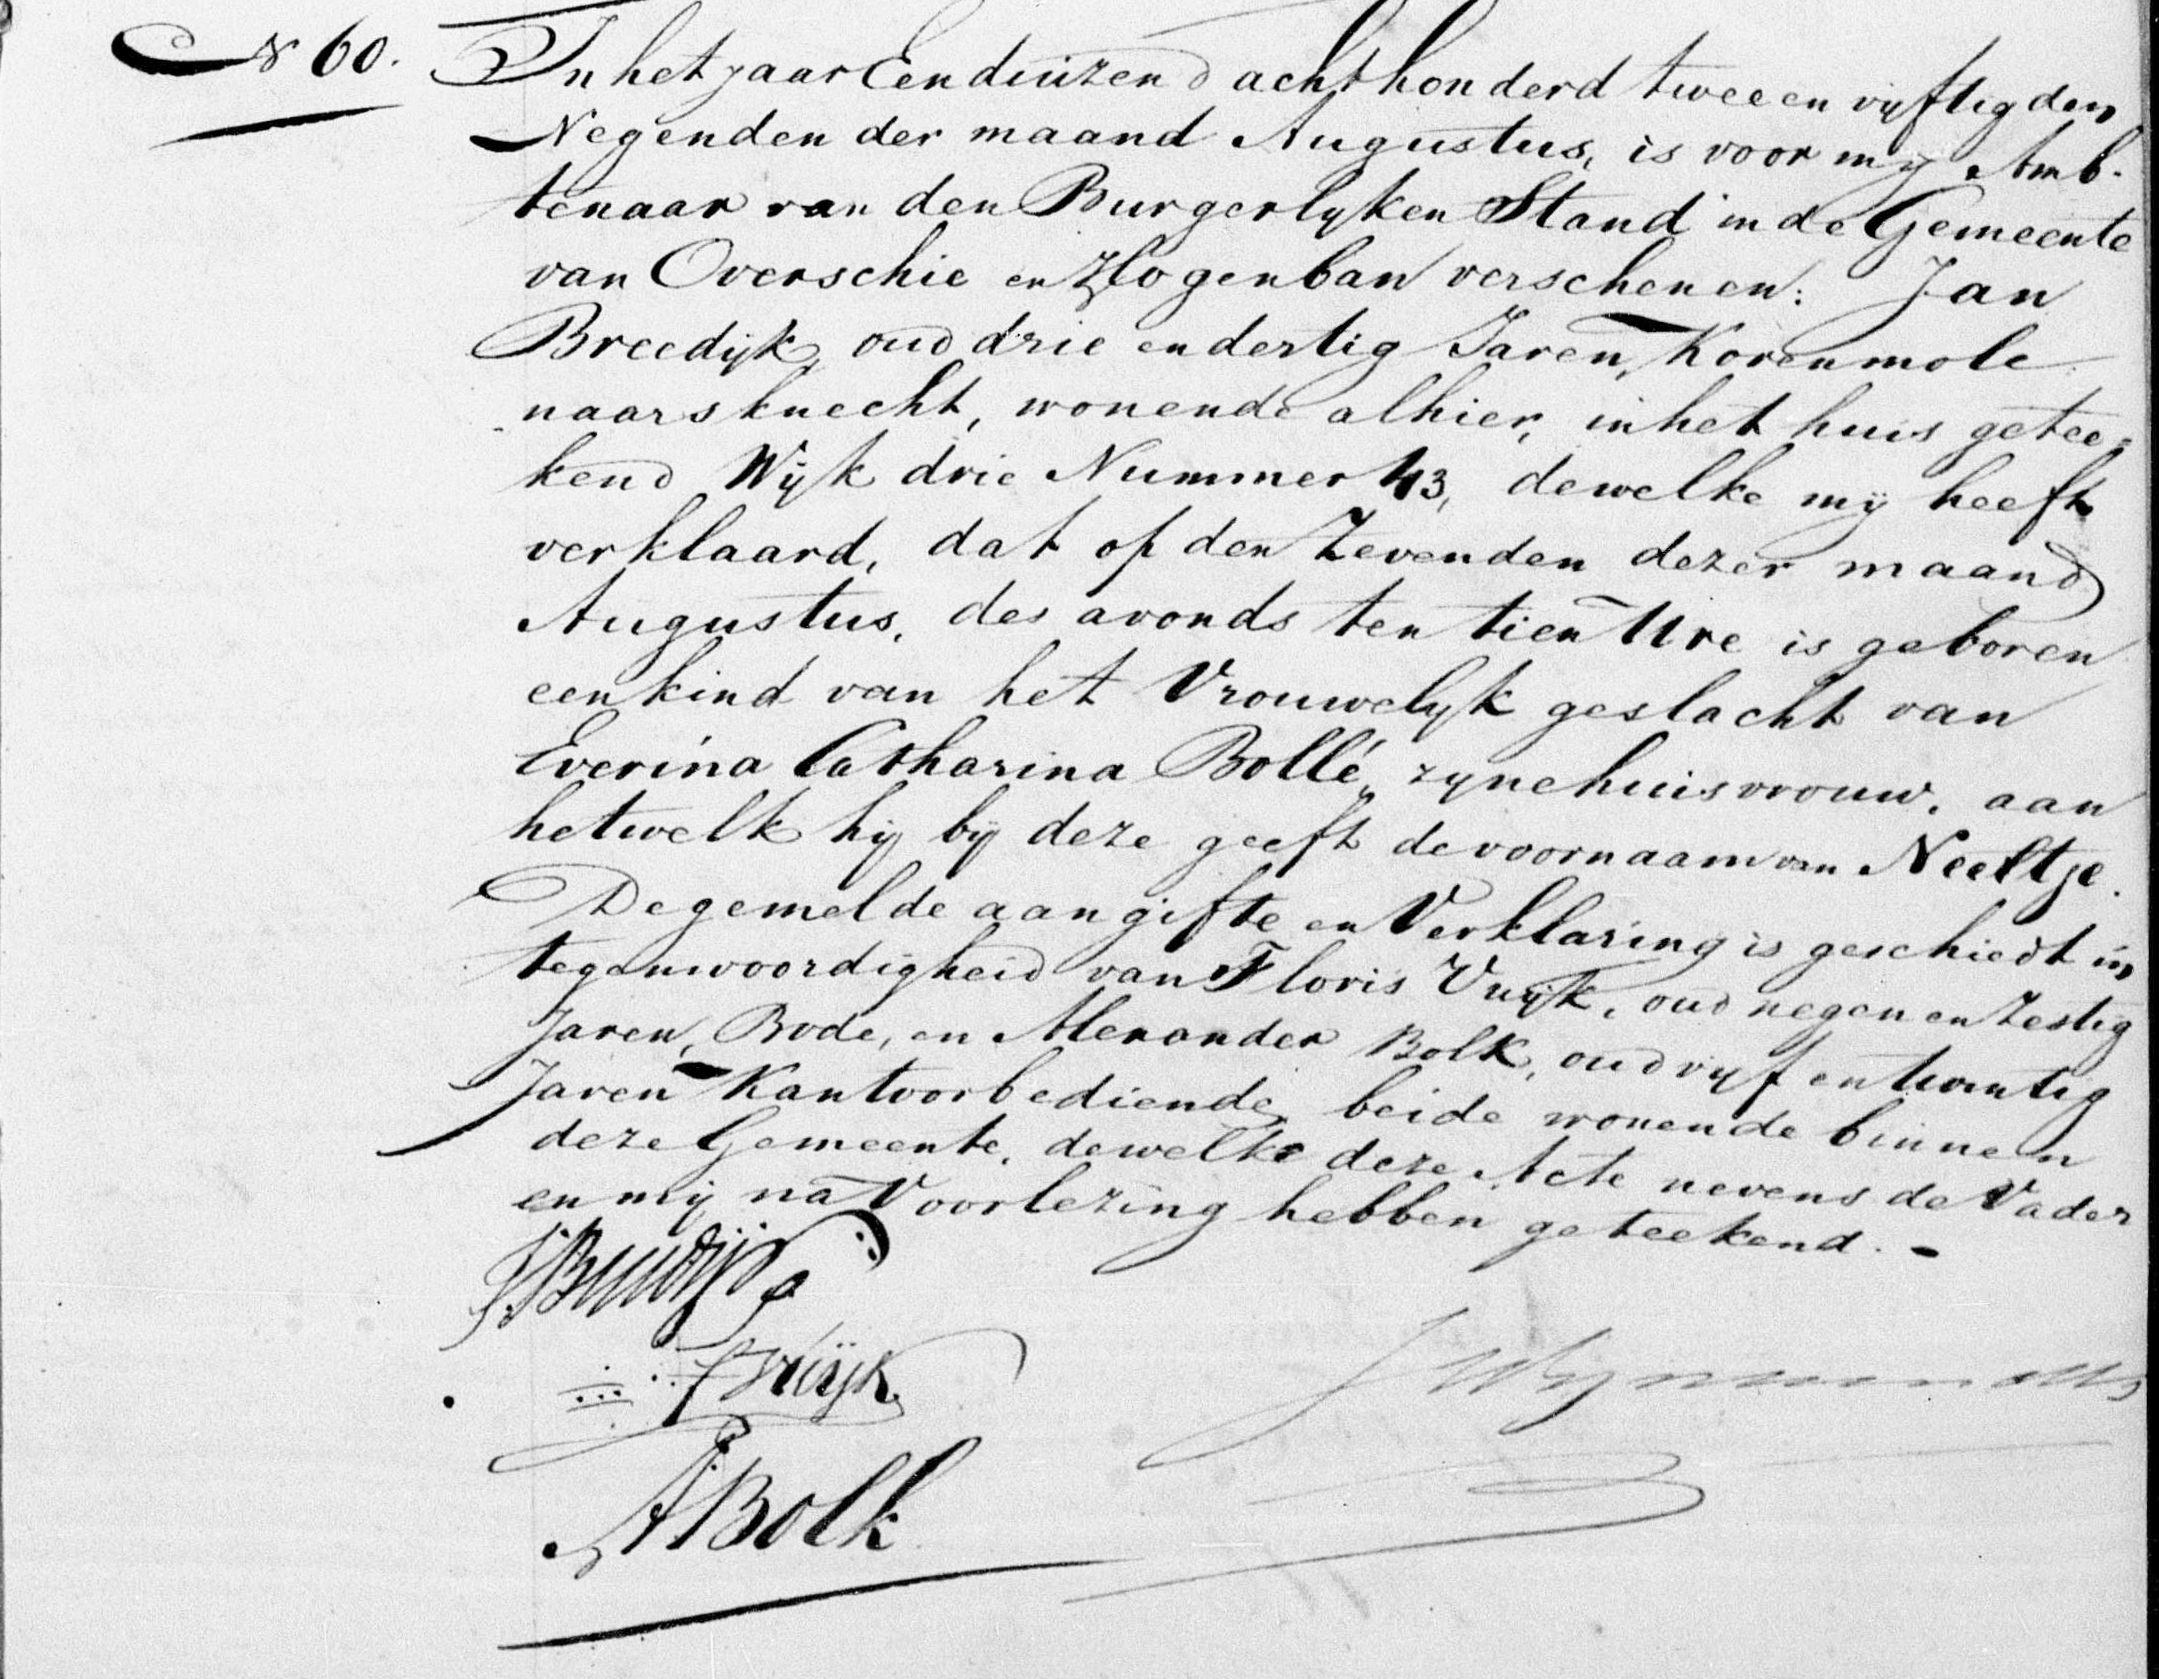 N 60. In het jaar Eenduizend achthonderd tweeen vijftig den
Negenden der maand Augustus, is voor mij Amb-
tenaar van den Burgerlyken Stand in de Gemeente
van Overschie en Hogenban verschenen: Jan
Breedijk, oud drie en dertig Jaren, Korenmole
naarsknecht, wonende alhier, in het huis getee=
kend Wijk drie Nummer 43, dewelke mij heeft
verklaard, dat op den Zevenden dezer maand
Augustus, des avonds ten tien Ure is geboren
een kind van het Vrouwelyk geslacht van
Everina Catharina Bollé, zyne huisvrouw, aan
hetwelk hij bij deze geeft de voornaam van Neeltje.
De gemelde aangifte en Verklaring is geschiedt in
tegenwoordigheid van Floris Vuijk, oud negen en Zestig
Jaren, Bode, en Alexander Bolk, oud vyf en twintig
Jaren Kantoorbediende, beide wonende binnen
deze Gemeente, dewelke deze Acte nevens de Vader
en mij na Voorlezing hebben geteekend. -
J. Breedijk
F Vuijk
A Bolk